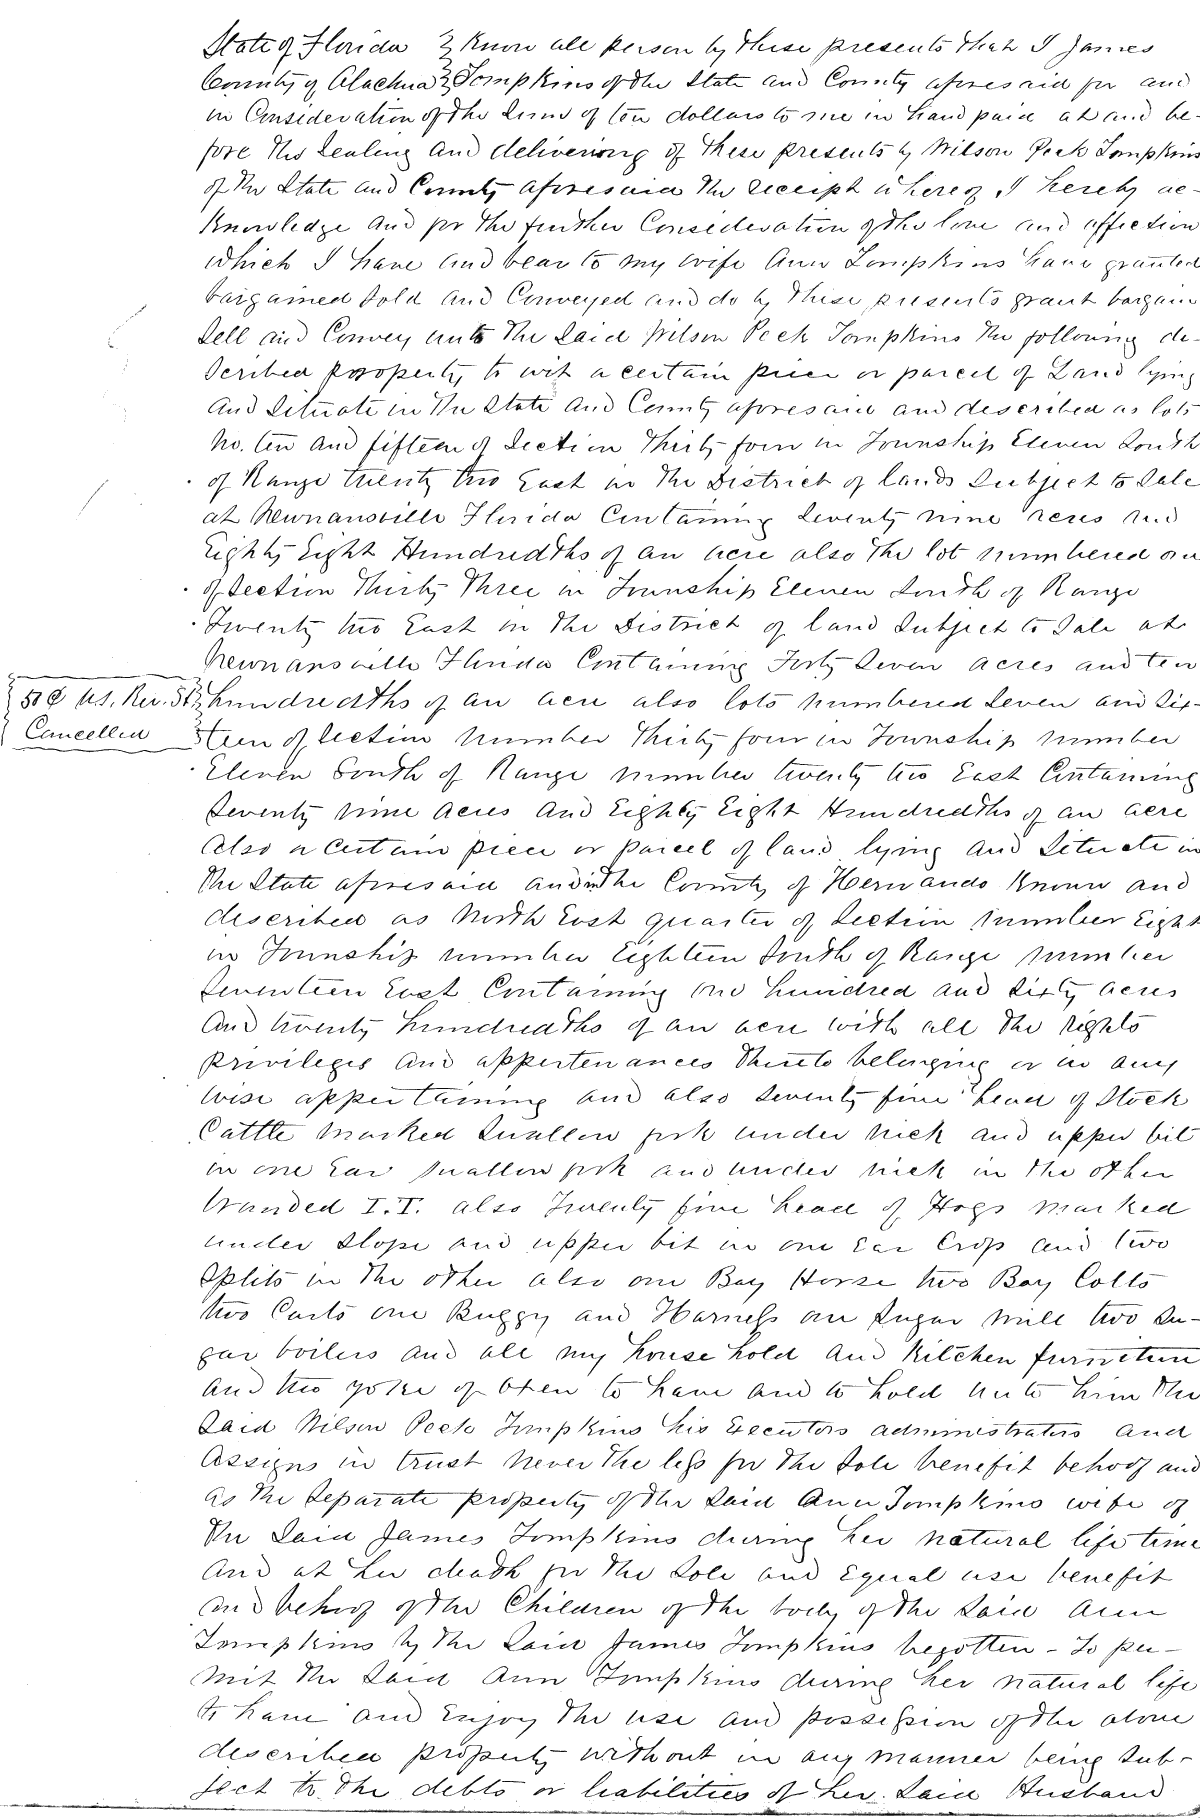 State of Florida } Know all person by these presents that I James
County of Alachua } Tompkins of the State and County aforesaid for and
in Consideration of the Sum of ten dollars to me in hand paid at and be-
fore the Sealing and delivering of these presents by Wilson Peek Tompkins
of the State and County aforesaid the receipt whereof I hereby ac-
knowledge and for the further Consideration of the love and affection
which I have and bear to my wife Ann Tompkins have granted
bargained Sold and Conveyed and do by these presents grant bargain
Sell and Convey unto the Said Wilson Peek Tompkins the following de-
scribed property to wit a certain piece or parcel of Land lying
and Situate in the State and County aforesaid and described as lots
No. ten and fifteen of Section Thirty four in Township Eleven South
of Range twenty two East in the District of lands Subject to Sale
at Newnansville Florida Containing Seventy nine acres and
Eighty Eight Hundredths of an acre also the lot numbered one
of Section Thirty Three in Township Eleven South of Range
Twenty two East in the District of land Subject to Sale at
Newnansville Florida Containing Forty Seven acres and ten
50¢ U.S. Rev. St. hundredths of an acre also lots numbered Seven and Six-
Cancelled teen of Section number Thirty four in Township number
Eleven South of Range number twenty two East Containing
Seventy nine acres and Eighty Eight Hundredths of an acre
Also a certain piece or parcel of land lying and Situate in
the State aforesaid and in the County of Hernando Known and
described as North East quarter of Section number Eight
in Township number Eighteen South of Range number
Seventeen East Containing one hundred and Sixty acres
And twenty hundredths of an acre with all the rights
privileges and appertenances thereto belonging or in any
wise appertaining and also Seventy five head of Stock
Cattle marked Swallow fork under nick and upper bit
in one Ear Swallow fork and under nick in the other
branded I.T. also Twenty five head of Hogs marked
under Slope and upper bit in one Ear Crop and two
Splits in the other also one Bay Horse two Bay Colts
two Carts one Buggy and Harness one Sugar mill two Su-
gar boilers and all my house hold and Kitchen furniture
and two yoke of Oxen to have and to hold unto him the
Said Wilson Peek Tompkins his Executors administrators and
Assigns in trust never the less for the Sole benefit behoof and
as the Separate property of the Said Ann Tompkins wife of
the Said James Tompkins during her natural life time
And at her death for the Sole and Equal use benefit
and behoof of the Children of the body of the Said Ann
Tompkins by the Said James Tompkins begotten - To per-
mit the Said Ann Tompkins during her natural life
to have and Enjoy the use and possession of the above
described property without in any manner being Sub-
ject to the debts or liabilities of her Said Husband